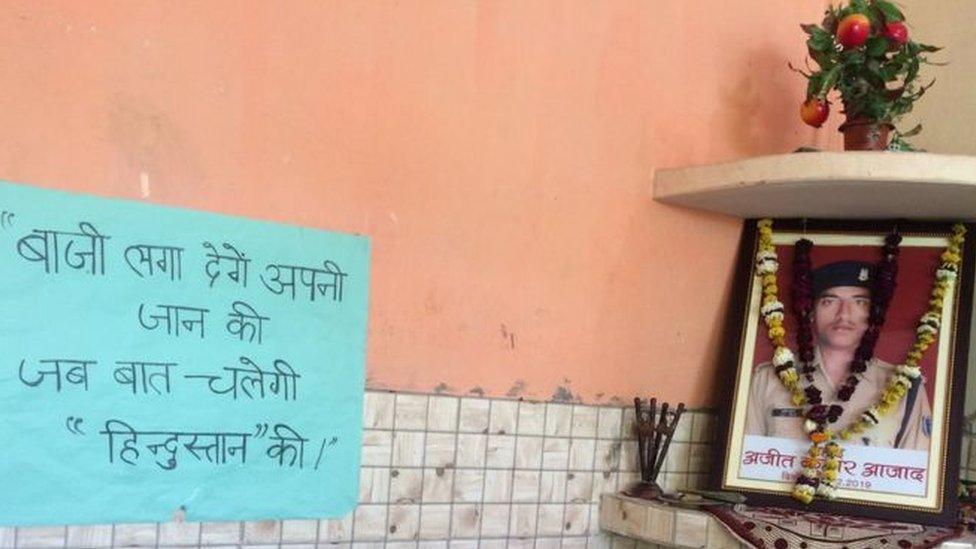 “बाजी लगा देगें अपनी
जान की
जब बात चलेगी
“हिन्दुस्तान” की।”
अजीत आजाद
2.2019